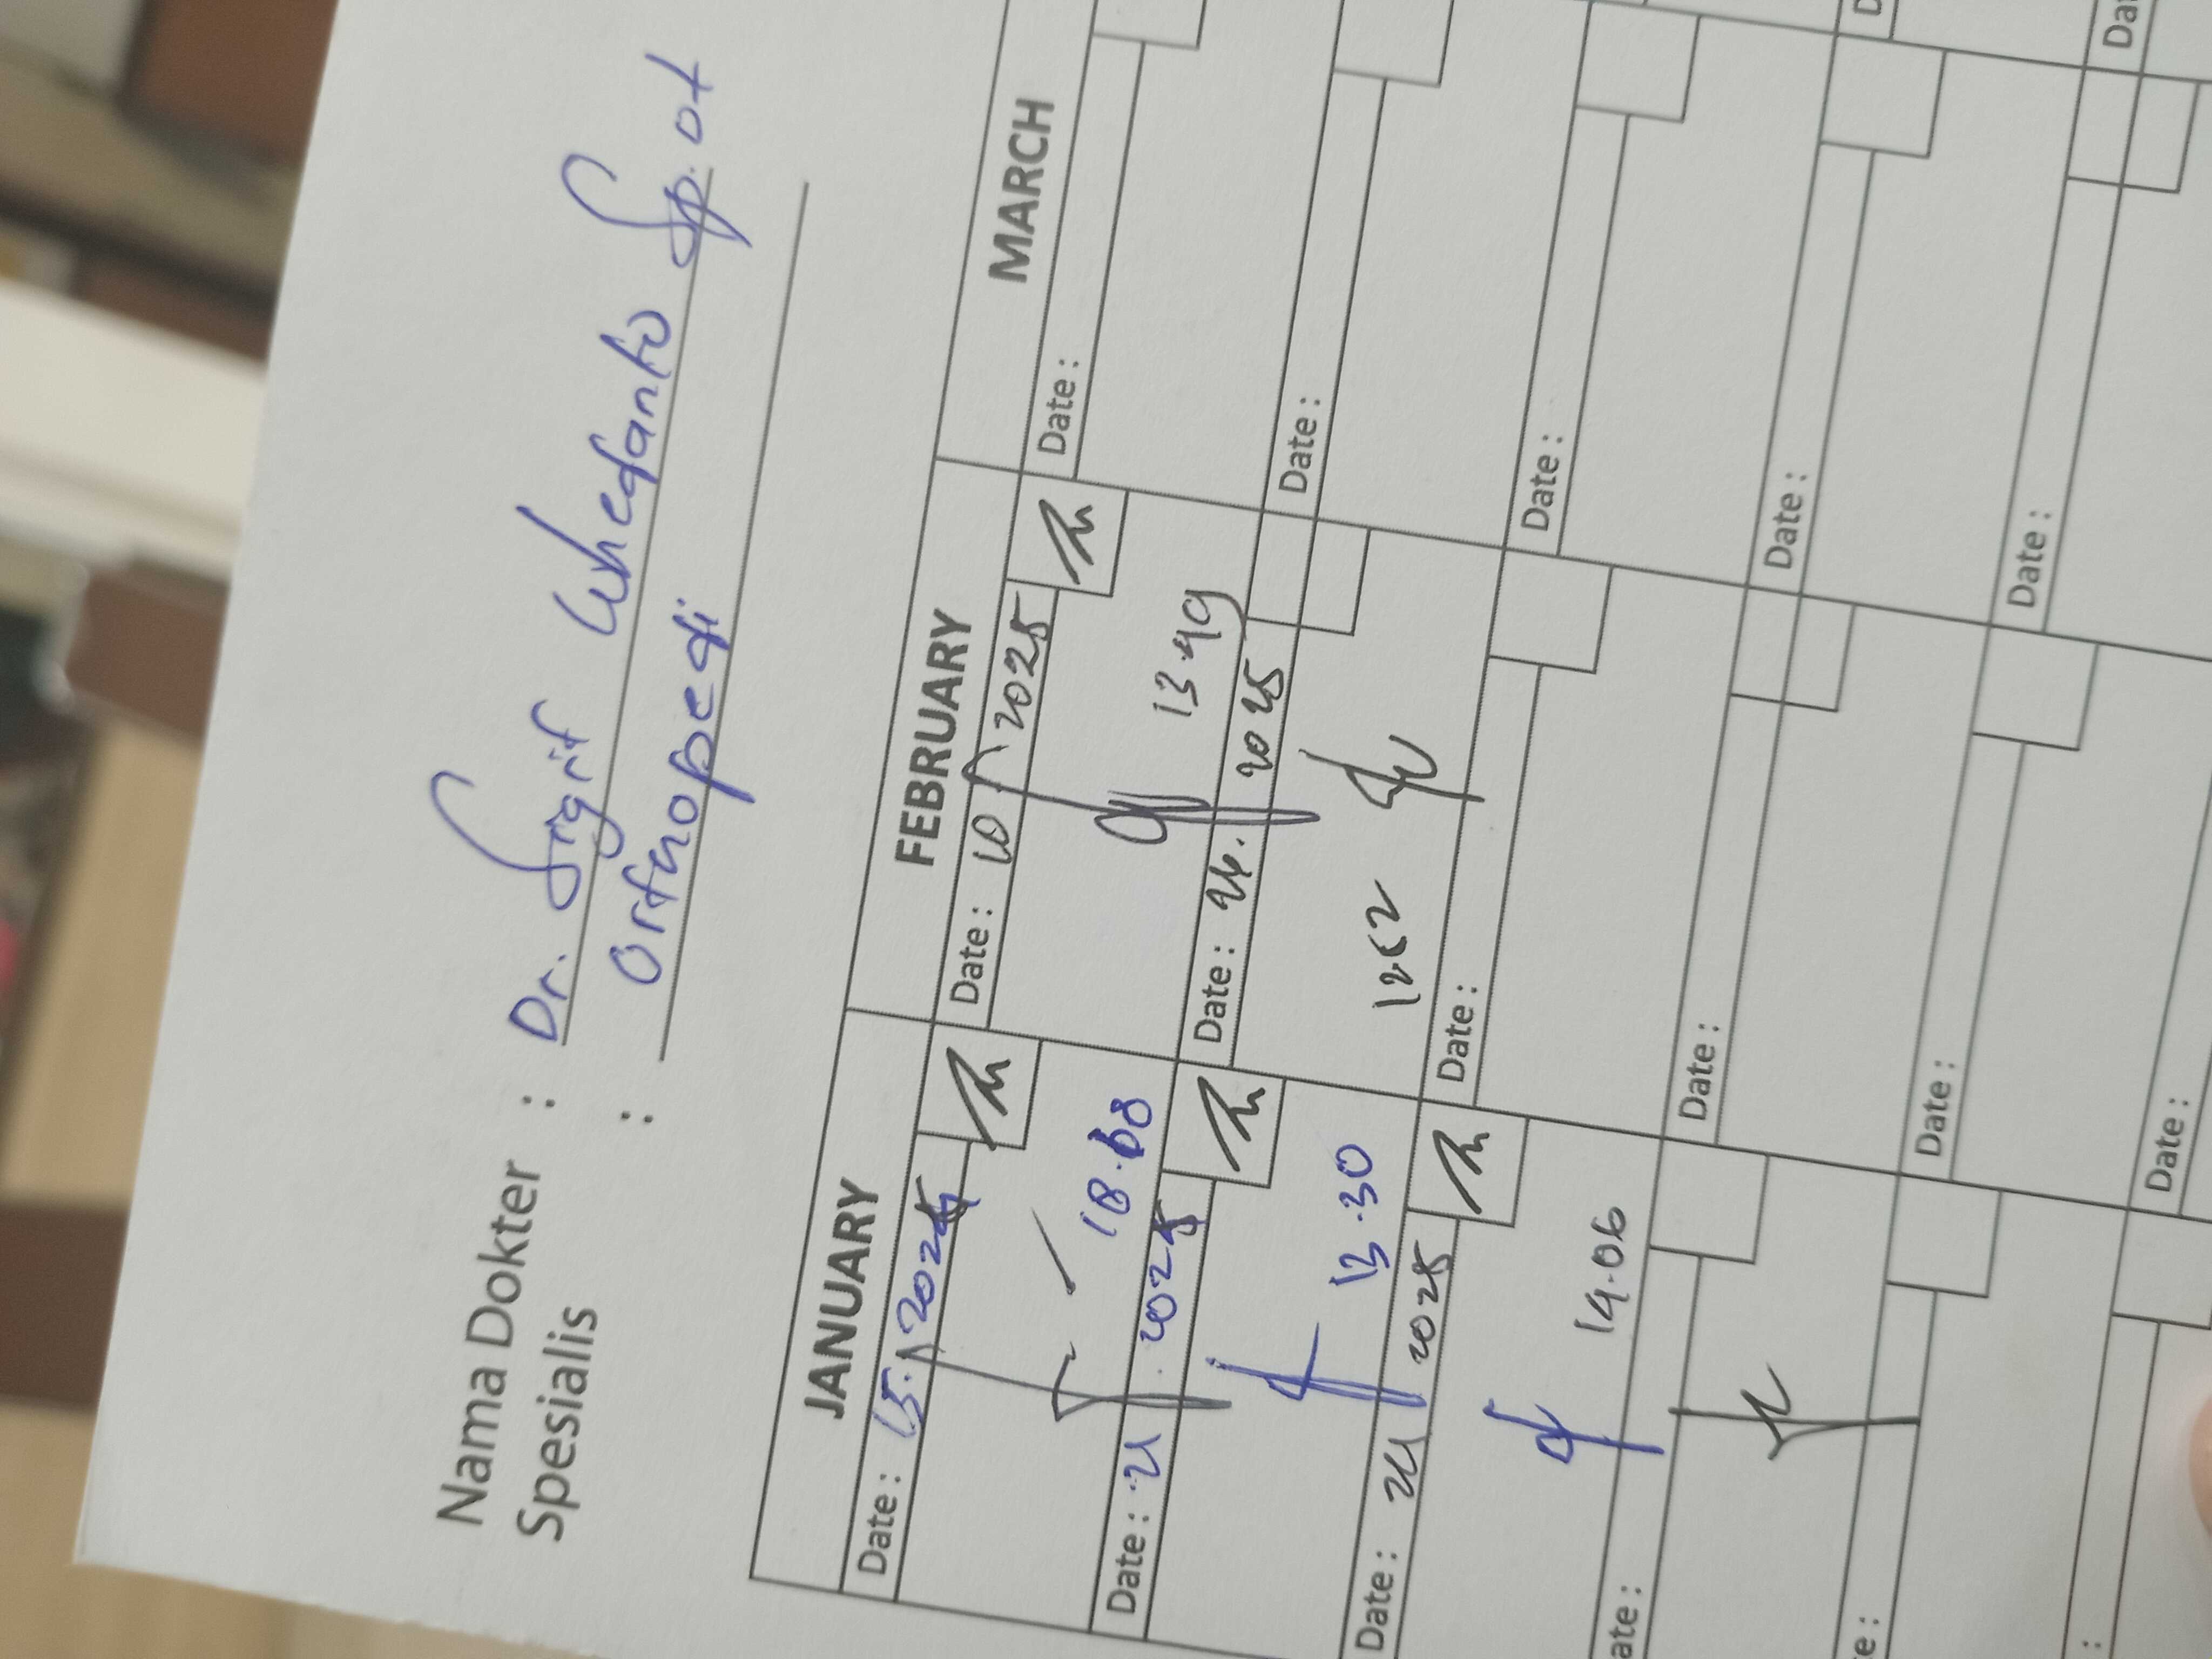 Nama Dokter : Dr. Sigit Whedanto Sp.ot
Spesialis : Orthopedi
JANUARY FEBRUARY MARCH
Date : 15. 2025 Date : 10 2025 Date :
18.08 13.49
Date : 21. 2025 Date : 24. 2025 Date :
13.30
Date : 2025 Date : Date :
14.06
ate : Date : Date :
te : Date : Date :
: Date : Dat
D